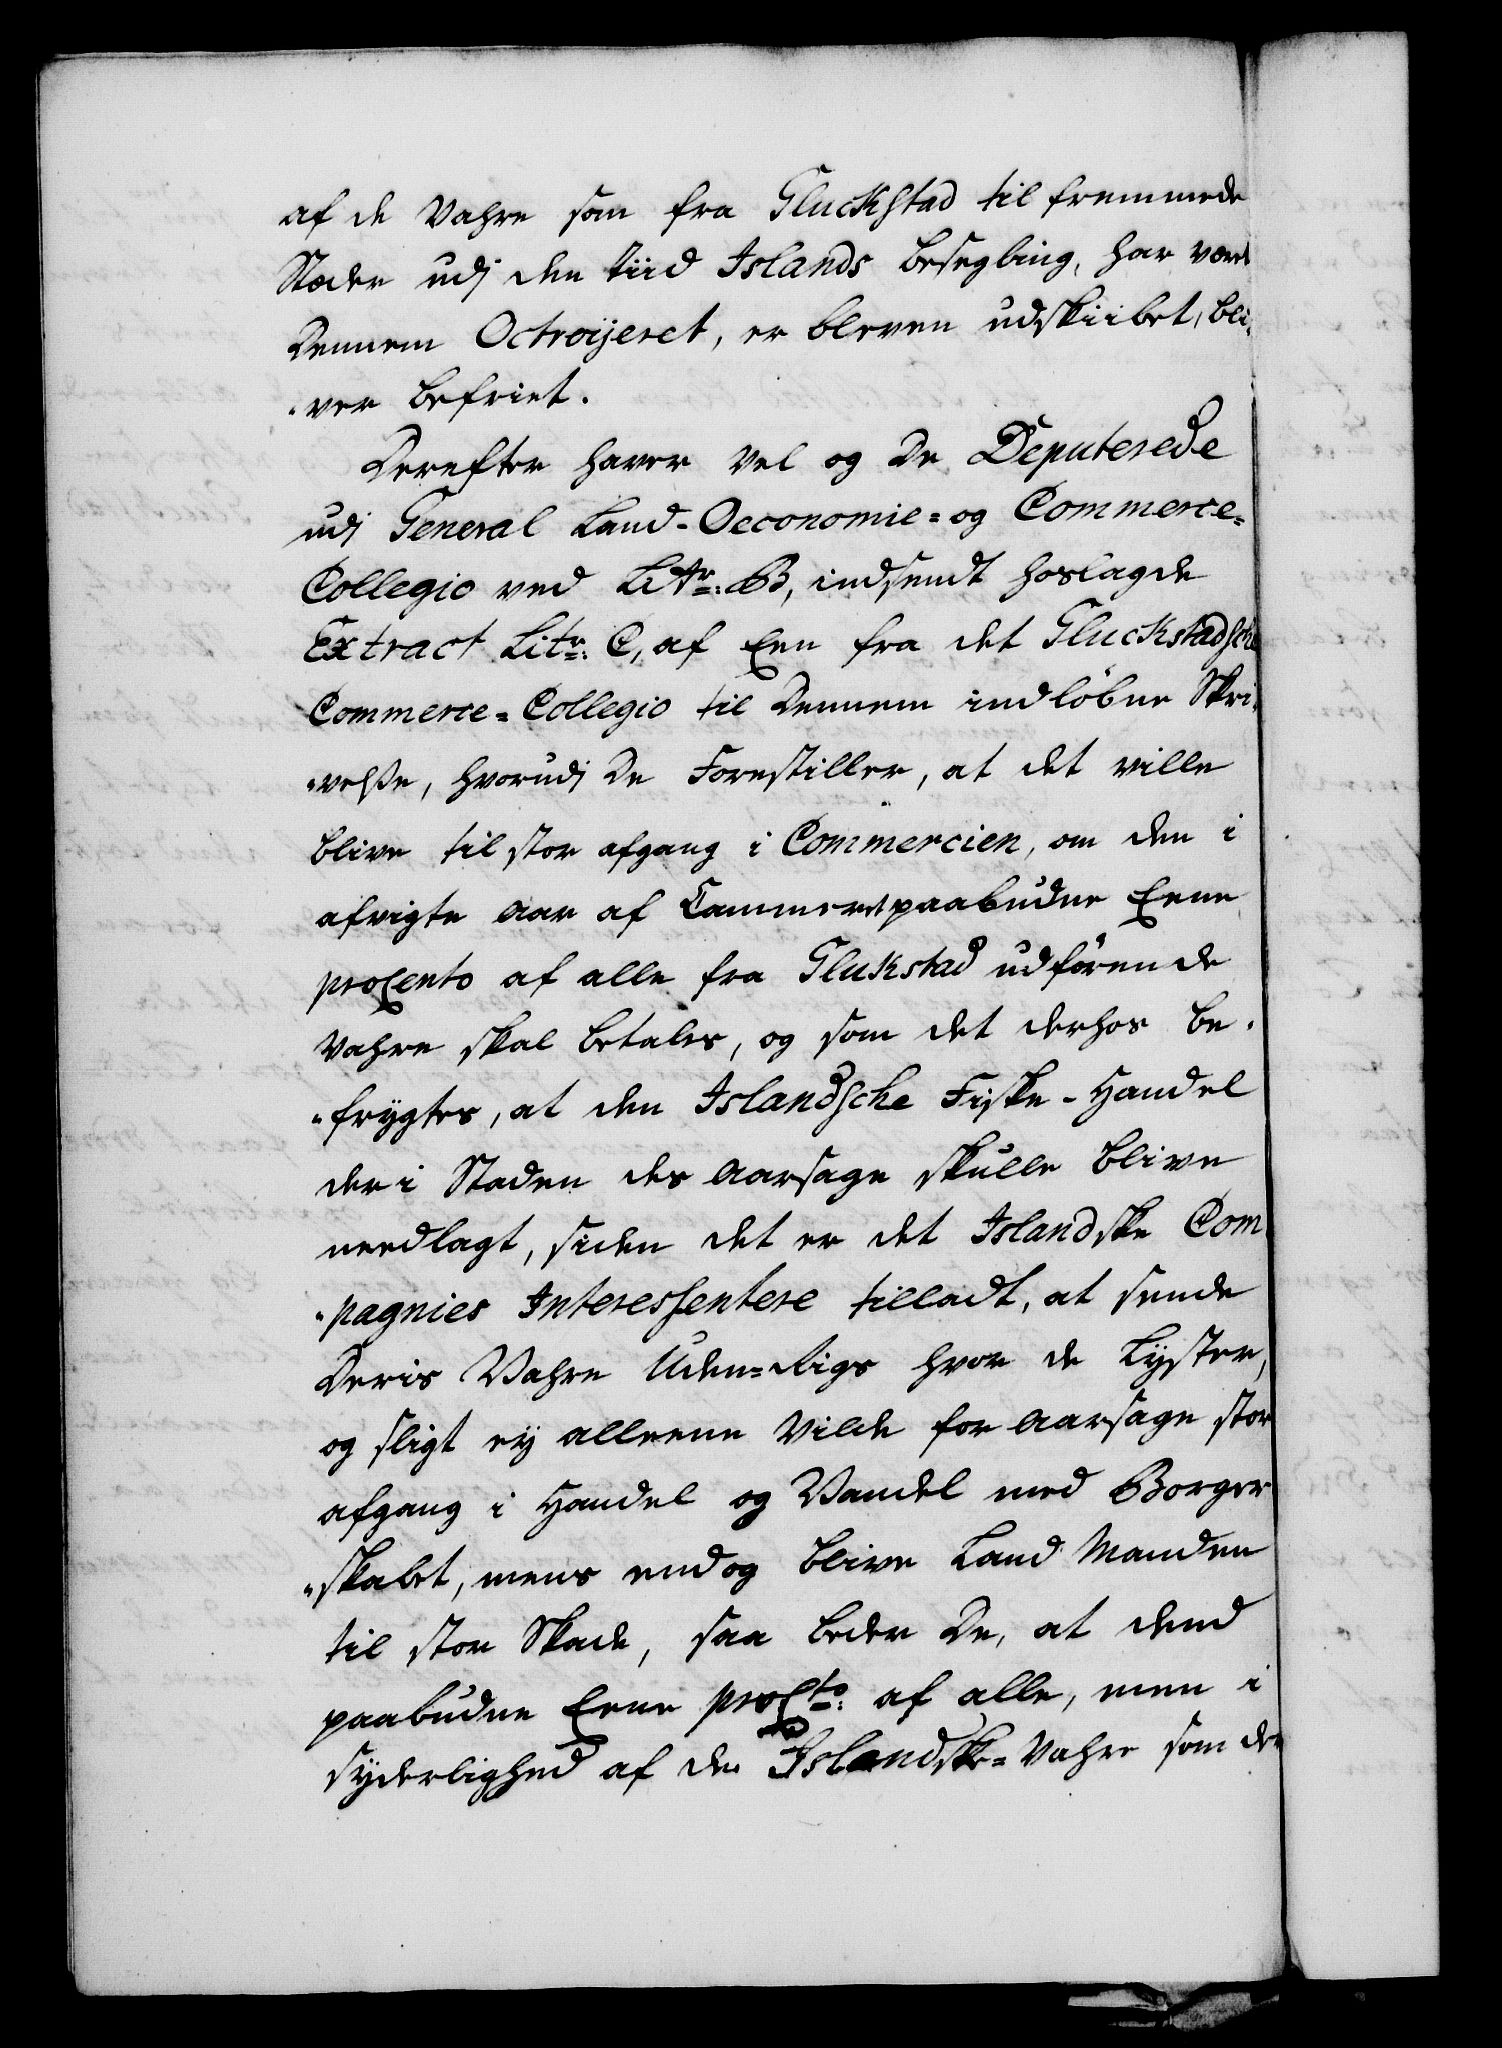 af de Vahre som fra Gluckstad til fremmede
Stæder udj den tiid Islands besegling, har været
Dennem Octroijeret, er bleven udskiibet, bli-
-ver befriet.
Derefter haver Vel og De Deputerede
udj General Land-Oeconomie=og Commerce=
Collegio ved Litr: B, indsendt hoslagde
Extract Litr: C, af Een fra det Gluckstadsche
Commerce=Collegio til Dennem indløbne Skri-
-velße, hvorudj De Forestiller, at det ville
blive til stor afgang i Commercien, om den i
afvigte Aar af Cammeret paabudne Eene
proCento af alle fra Glukstad udførende
Vahre skal betales, og som det derhos be-
-frygtes, at den Islandsche Fiske-Handel
der i Staden des Aarsage skulle blive
needlagt, siden det er det Islandske Com-
-pagnies Interessentere tilladt, at sende
Deris Vahre Uden=Rigs hvor de Lyster,
og sligt ey alleene Vilde foraarsage stor
afgang i Handel og Vandel med Borger-
-skabet, mens endog blive Land Manden
til stor Skade, saa beder De, at dend
paabudne Eene proCto: af alle, men i
syderlighed af de Islandske=Vahre som de